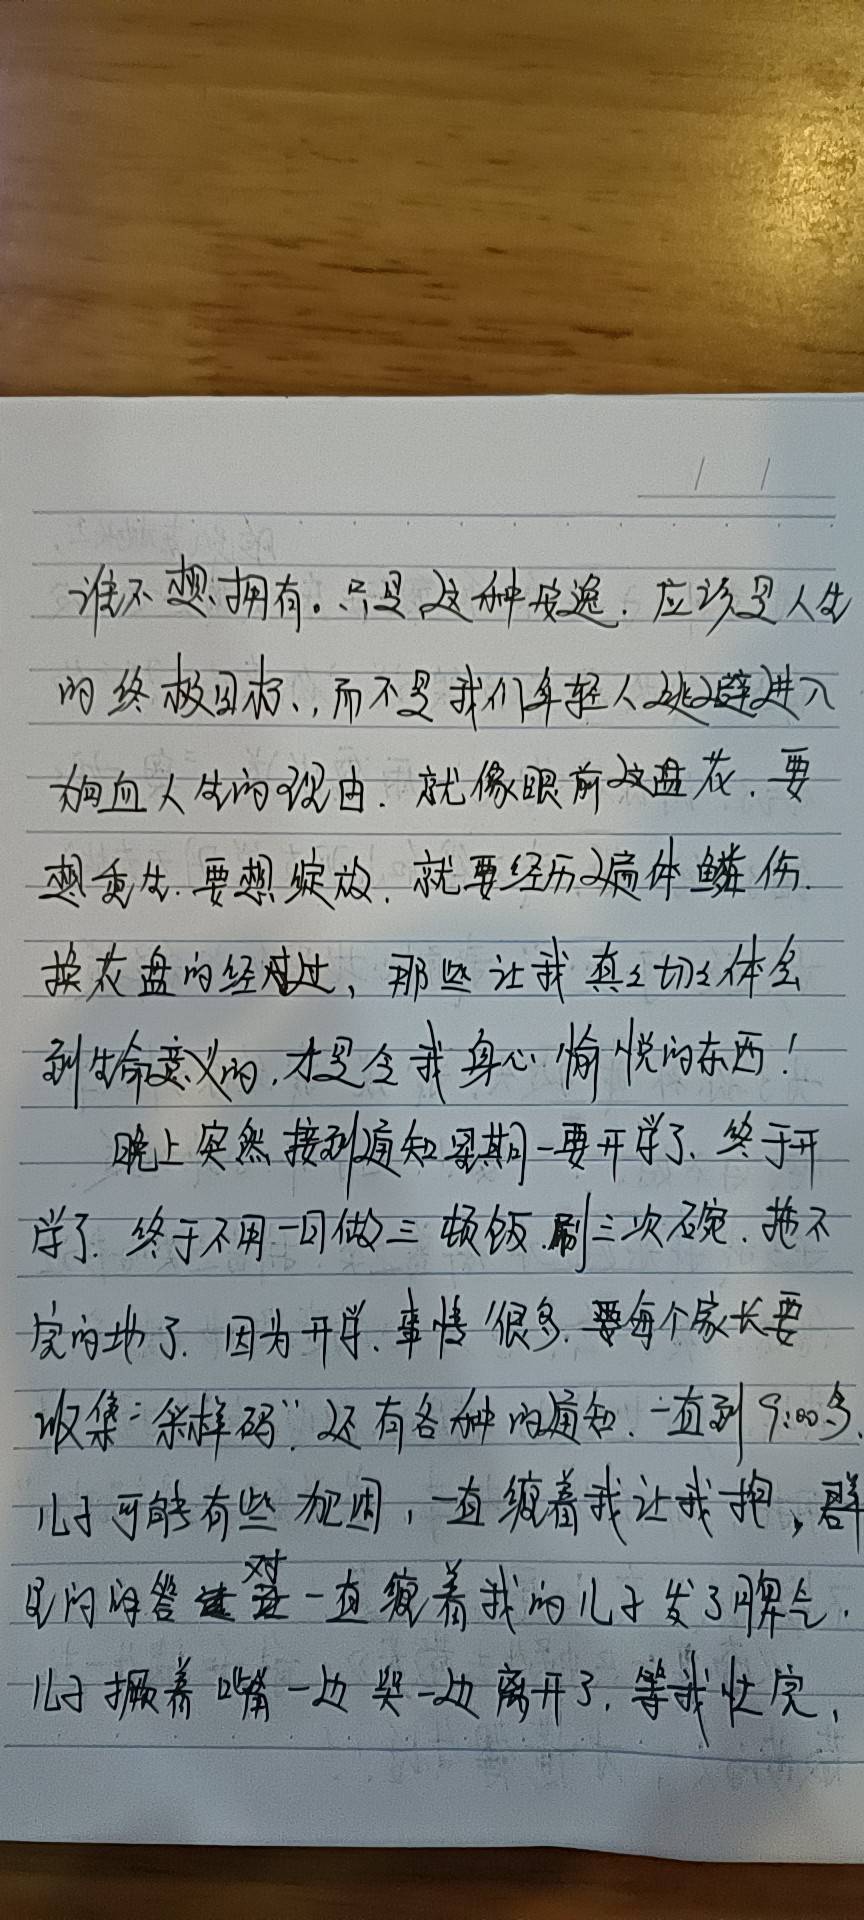 谁不想拥有。只是这种安逸.应该是人生
的终极目标,而不是我们年轻人逃避进入
热血人生的理由.就像眼前这盘花.要
想重生.要想绽放.就要经历遍体鳞伤.
换花盘的经过,那些让我真真切切体会
到生命意义的,才是令我身心愉悦的东西!
晚上突然接到通知星期一要开学了、终于开
学了.终于不用一日做三顿饭.刷三次碗.拖不
完的地了.因为开学、事情很多.要每个家长要
收集“采样码”.还有各种的通知.一直到9:00多.
儿子可能有些犯困,一直缠着我让我抱,群
里的的答对一直缠着我的儿子发了脾气.
儿子撅着嘴一边哭一边离开了.等我忙完,